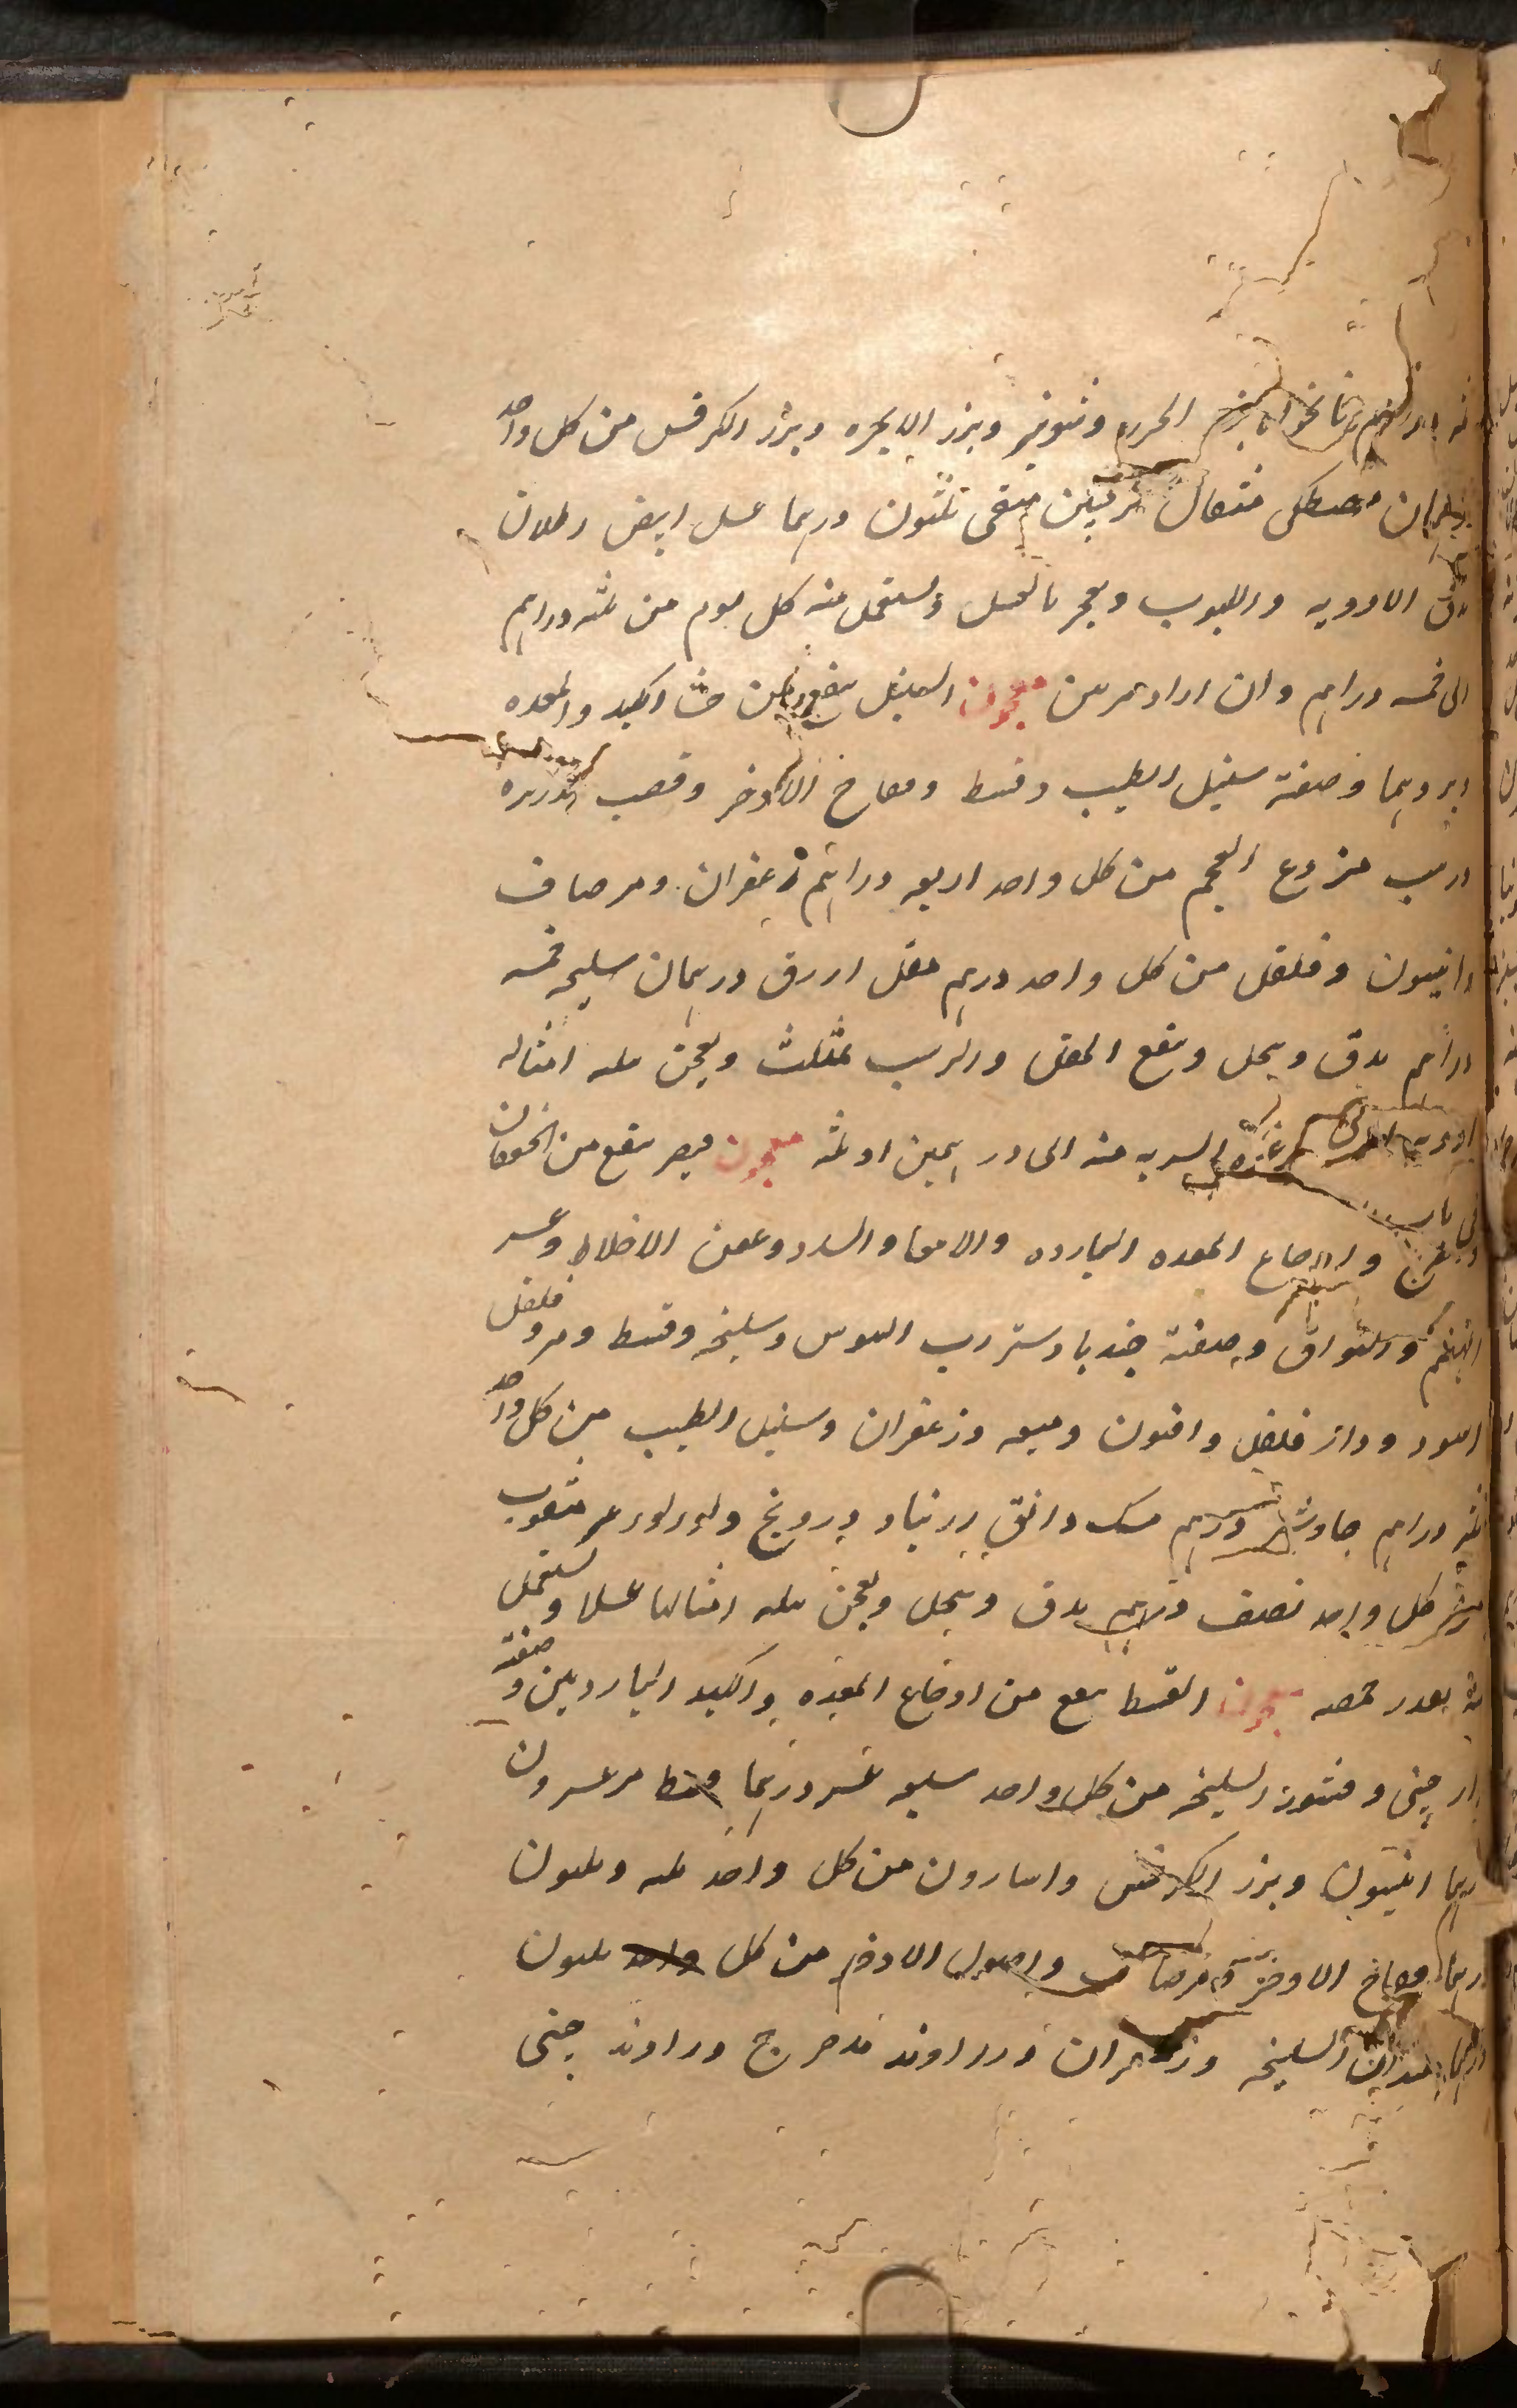 دراهم نانخواه بزر الجزر وشونيز وبزر الانجره وبزر الكرفس من كل واحد
درهمان مصطكى مثقال ترنجبين منقى ثلثون درهما عسل ابيض رطلان
يدق الادويه واللبوب ويعجن بالعسل ويستعمل منه كل يوم من ثلثه دراهم
الى خمسه دراهم وان اراد مرتين معجون السنبل ينفع من الكبد والمعده
وبردهما وصفته سنبل الطيب وقسط وفقاح الاذخر وقصب الذريره
وزبيب منزوع العجم من كل واحد اربعه دراهم زعفران ومر صاف
وانيسون وفلفل من كل واحد درهم مقل ازرق درهمان سليخه خمسه
دراهم يدق وينخل وينقع المقل والزبيب بمثلث ويعجن بثلثه امثاله
الشربه منه الى درهمين او ثلثه معجون قيصر ينفع من الخفقان
واوجاع المعده البارده والامعا والسدد وعفن الاخلاط وعسر
والفواق وصفته جندبادستر رب السوس وسليخه وقسط ومر وفلفل
اسود ودار فلفل وافيون وميعه وزعفران وسنبل الطيب من كل واحد
دراهم جاوشير درهم مسك دانق زرنباد ودرونج ولولو غير مثقوب
من كل واحد نصف درهم يدق وينخل ويعجن بثلثه امثالها عسلا ويستعمل
بقدر حمصه معجون القسط ينفع من اوجاع المعده والكبد الباردتين وصفته
دارچينى وقشور السليخه من كل واحد سبعه عشر درهما قسط مر عشرون
درهما انيسون وبزر الكرفس واسارون من كل واحد ثلثه وثلثون
درهما فقاح الاذخر ومر صاف واصول الاذخر من كل واحد ثلثون
درهما السليخه وزعفران وزراوند مدحرج وراوند چينى